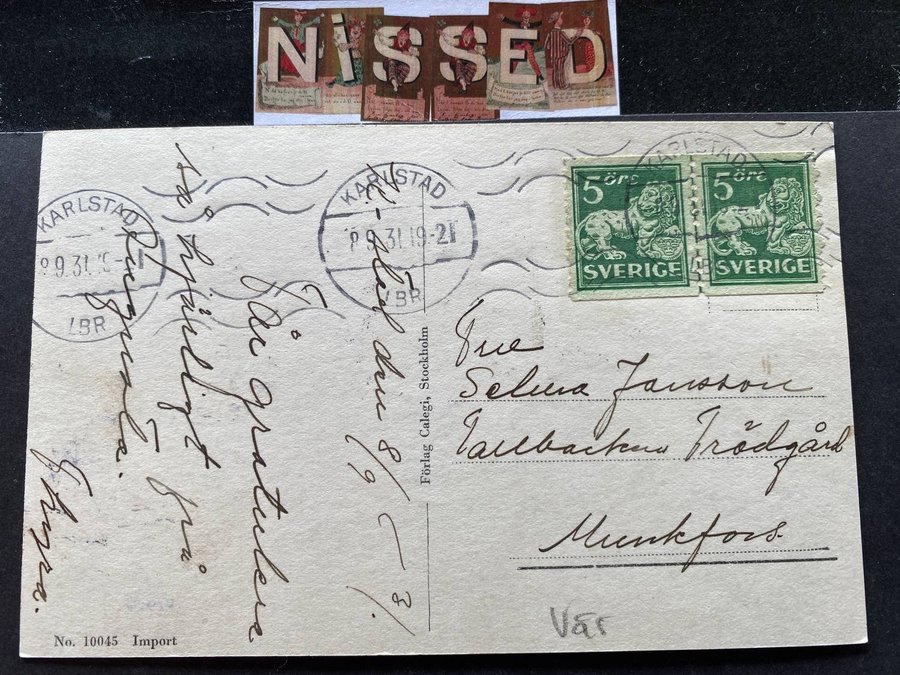 NISSED
KARLSTAD
8 9.31.19-21
LBR
KARLSTAD
8 9.31.19-
LBR
KARLSTAD
LBR
5 öre
SVERIGE
5 öre
SVERIGE
K-stad den 8/9 - 31.
Får gratulera
så hjärtligt på
Thyra.
Förlag Calegi, Stockholm
Fru
Selma Jansson
Tallbacken Trädgård
Munkfors
Vär
No. 10045 Import